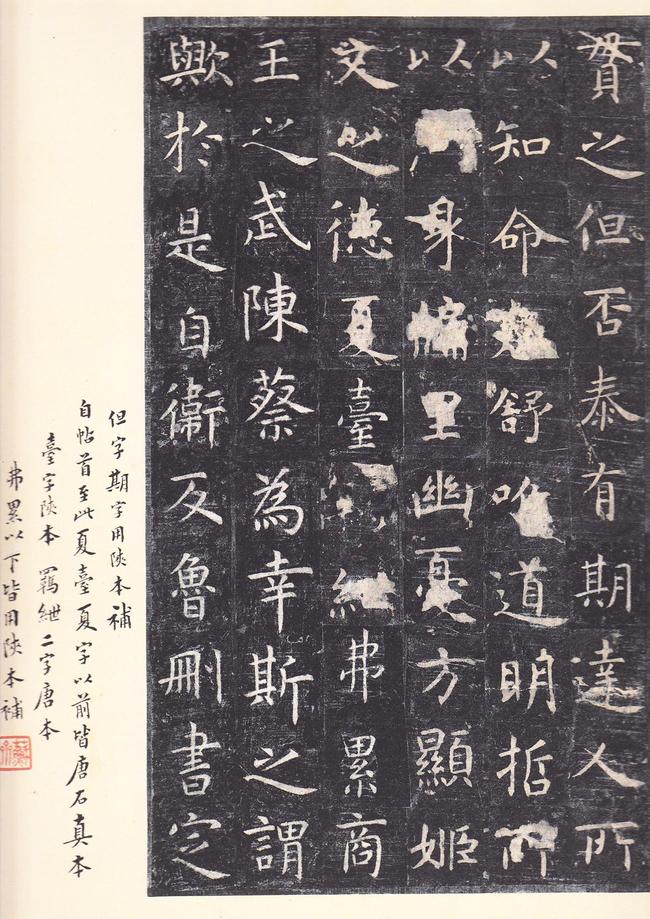 貫之但否泰有期達人所
以知命舒唯道明哲所
以身牖里幽憂方顯姬
文之德夏臺紲弗累商
王之武陳蔡為幸斯之謂
歟於是自衛反魯刪書定
但字期字用陝本補
自帖首至此夏臺夏字以前皆唐石真本
臺字陝本 羈紲二字唐本
弗累以下皆用陝本補